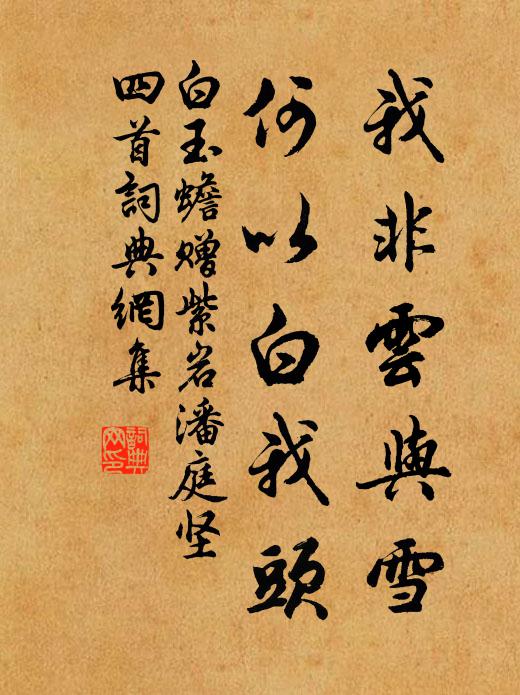 我非雲與雪
何以白我頭
白玉蟾贈紫岩潘庭坚
四首詞典網集
詞典
网印